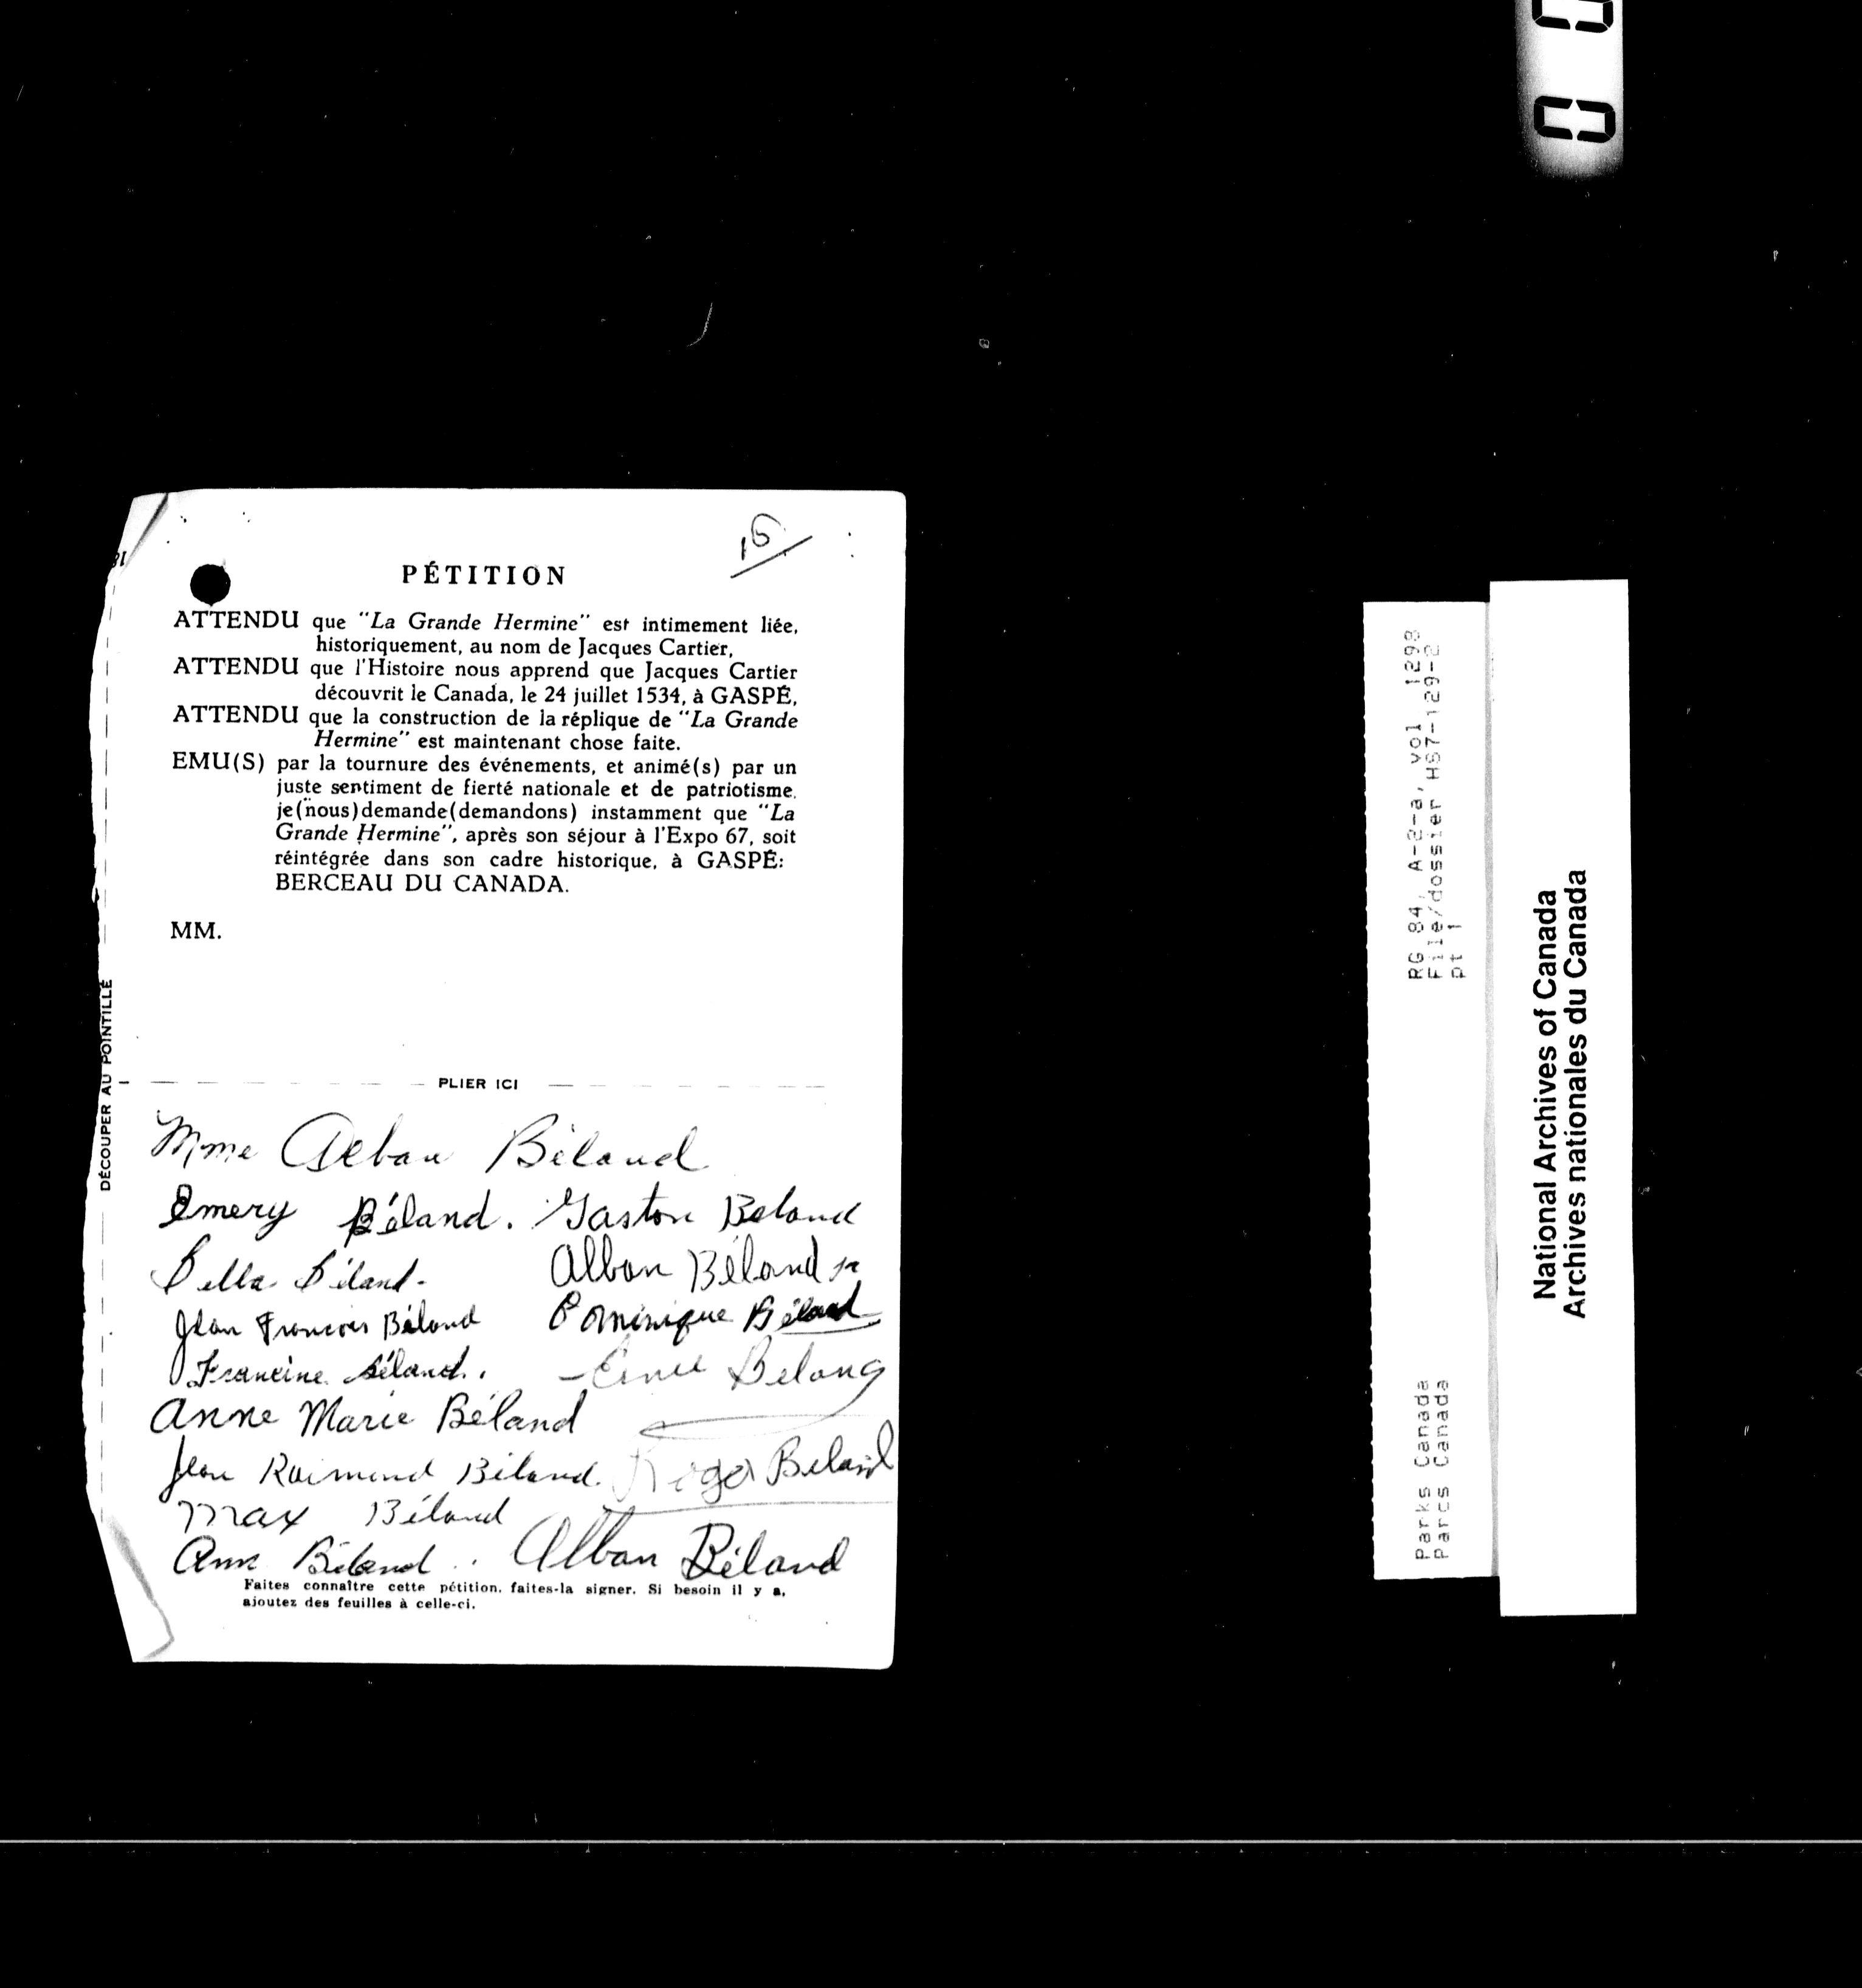 15
PÉTITION
ATTENDU que "La Grande Hermine" est intimement liée,
historiquement, au nom de Jacques Cartier,
ATTENDU que l'Histoire nous apprend que Jacques Cartier
découvrit le Canada, le 24 juillet 1534, à GASPÉ,
ATTENDU que la construction de la réplique de "La Grande
Hermine" est maintenant chose faite.
EMU(S) par la tournure des événements, et animé(s) par un
juste sentiment de fierté nationale et de patriotisme,
je(nous)demande(demandons) instamment que "La
Grande Hermine", après son séjour à l'Expo 67, soit
réintégrée dans son cadre historique, à GASPÉ:
BERCEAU DU CANADA.
MM.
DÉCOUPER AU POINTILLÉ
PLIER ICI
Mme Alban Béland
Emery Béland. Gaston Beland
Bella Béland.
Alban Béland sr
Jean Francois Béland
Dominique Béland
Francine Béland.
Belang
Anne Marie Béland
Jean Raimond Béland.
Roger Beland
Max Béland
Ann Béland. Alban Béland
Faites connaître cette pétition, faites-la signer. Si besoin il y a,
ajoutez des feuilles à celle-ci.
RG 84, A-2-a, vol. 1298
File/dossier HS7-129-2
pt 1
Parks Canada
Parcs Canada
National Archives of Canada
Archives nationales du Canada